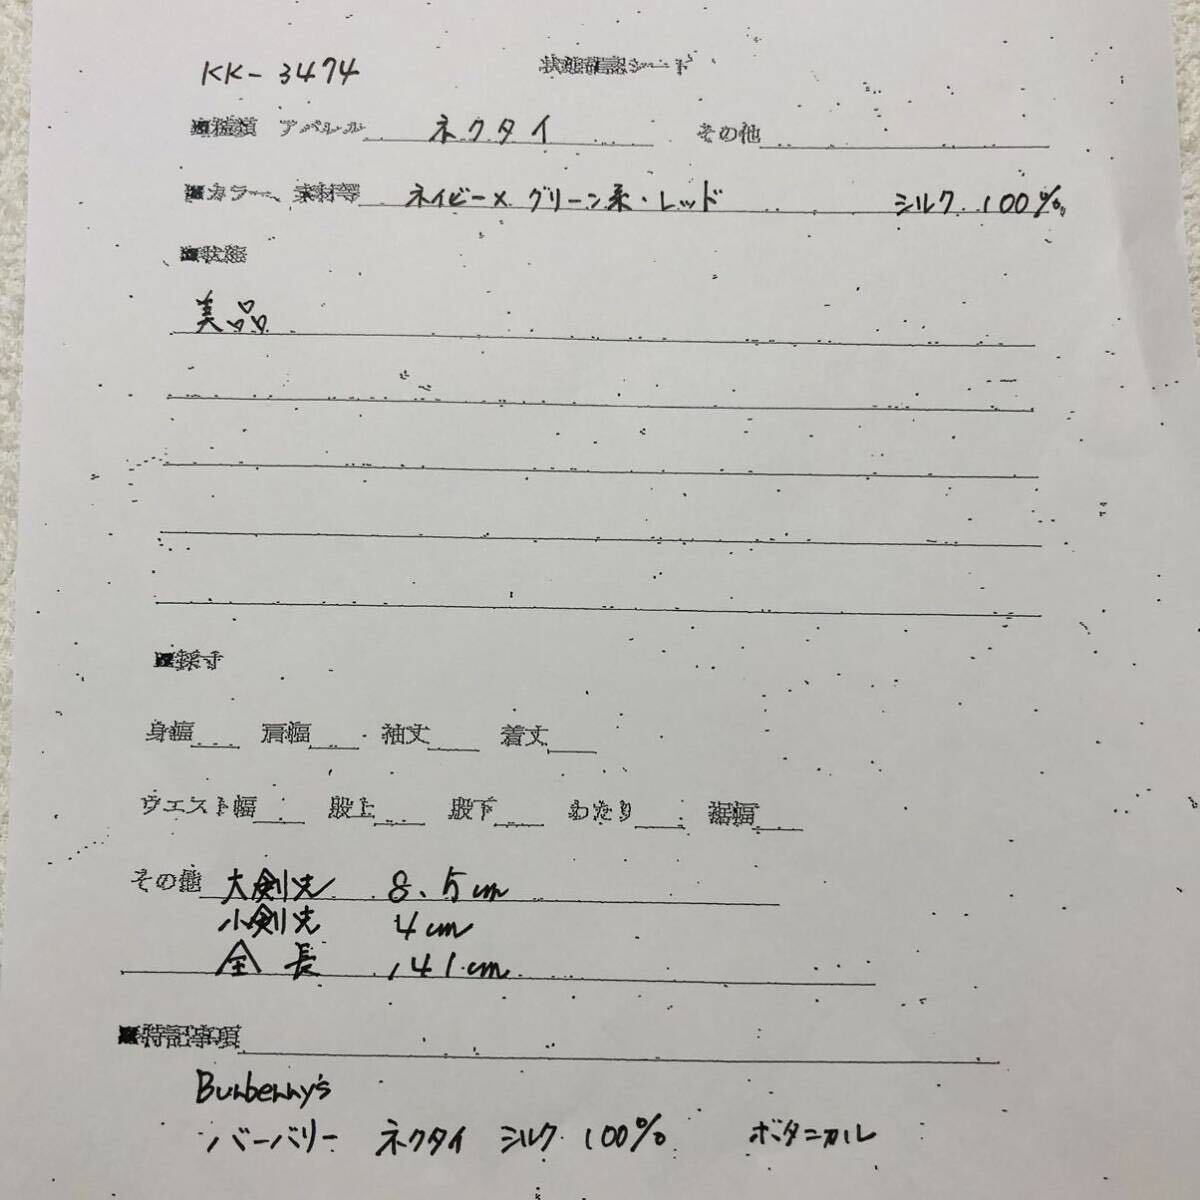 KK-3474 状態確認シート
■種類 アパレル ネクタイ その他
■カラー、素材等 ネイビー×グリーン系・レッド シルク 100%
■状態
美品
■採寸
身幅 肩幅 袖丈 着丈
ウエスト幅 股上 股下 わたり 裾幅
その他 大剣先 8.5cm
小剣先 4cm
全長 141cm
■特記事項
Burberry's
バーバリー ネクタイ シルク 100% ボタニカル